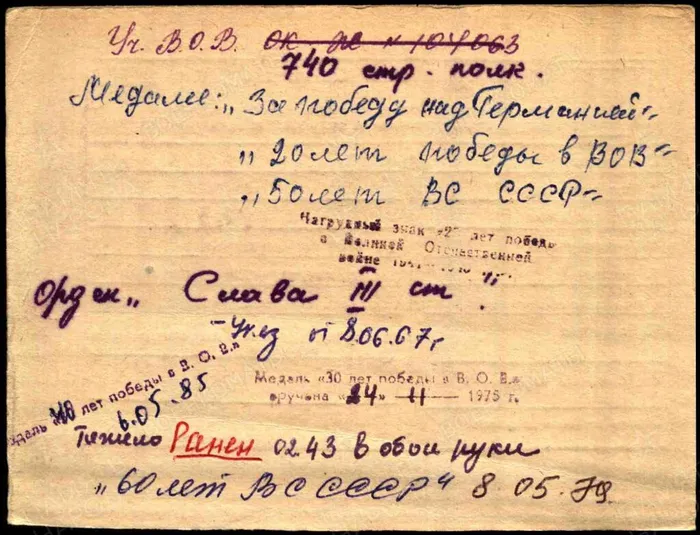 Уч. В.О.В. ок № 107063
740 стр. полк.
Медали: „За победу над Германией"
„20 лет победы в ВОВ"
„50 лет ВС СССР"
Нагрудный знак «25 лет победы
в Великой Отечественной
войне 1941-1945 г.г.
Орден „Слава III ст."
- Указ от 8.06.67г
Медаль «40 лет победы в В. О. В.»
6.05.85
Медаль «30 лет победы в В. О. В.»
вручена «24» — 11 — 1975 г.
Тяжело Ранен 02.43 в обои руки
„60 лет ВС СССР" 8.05.79